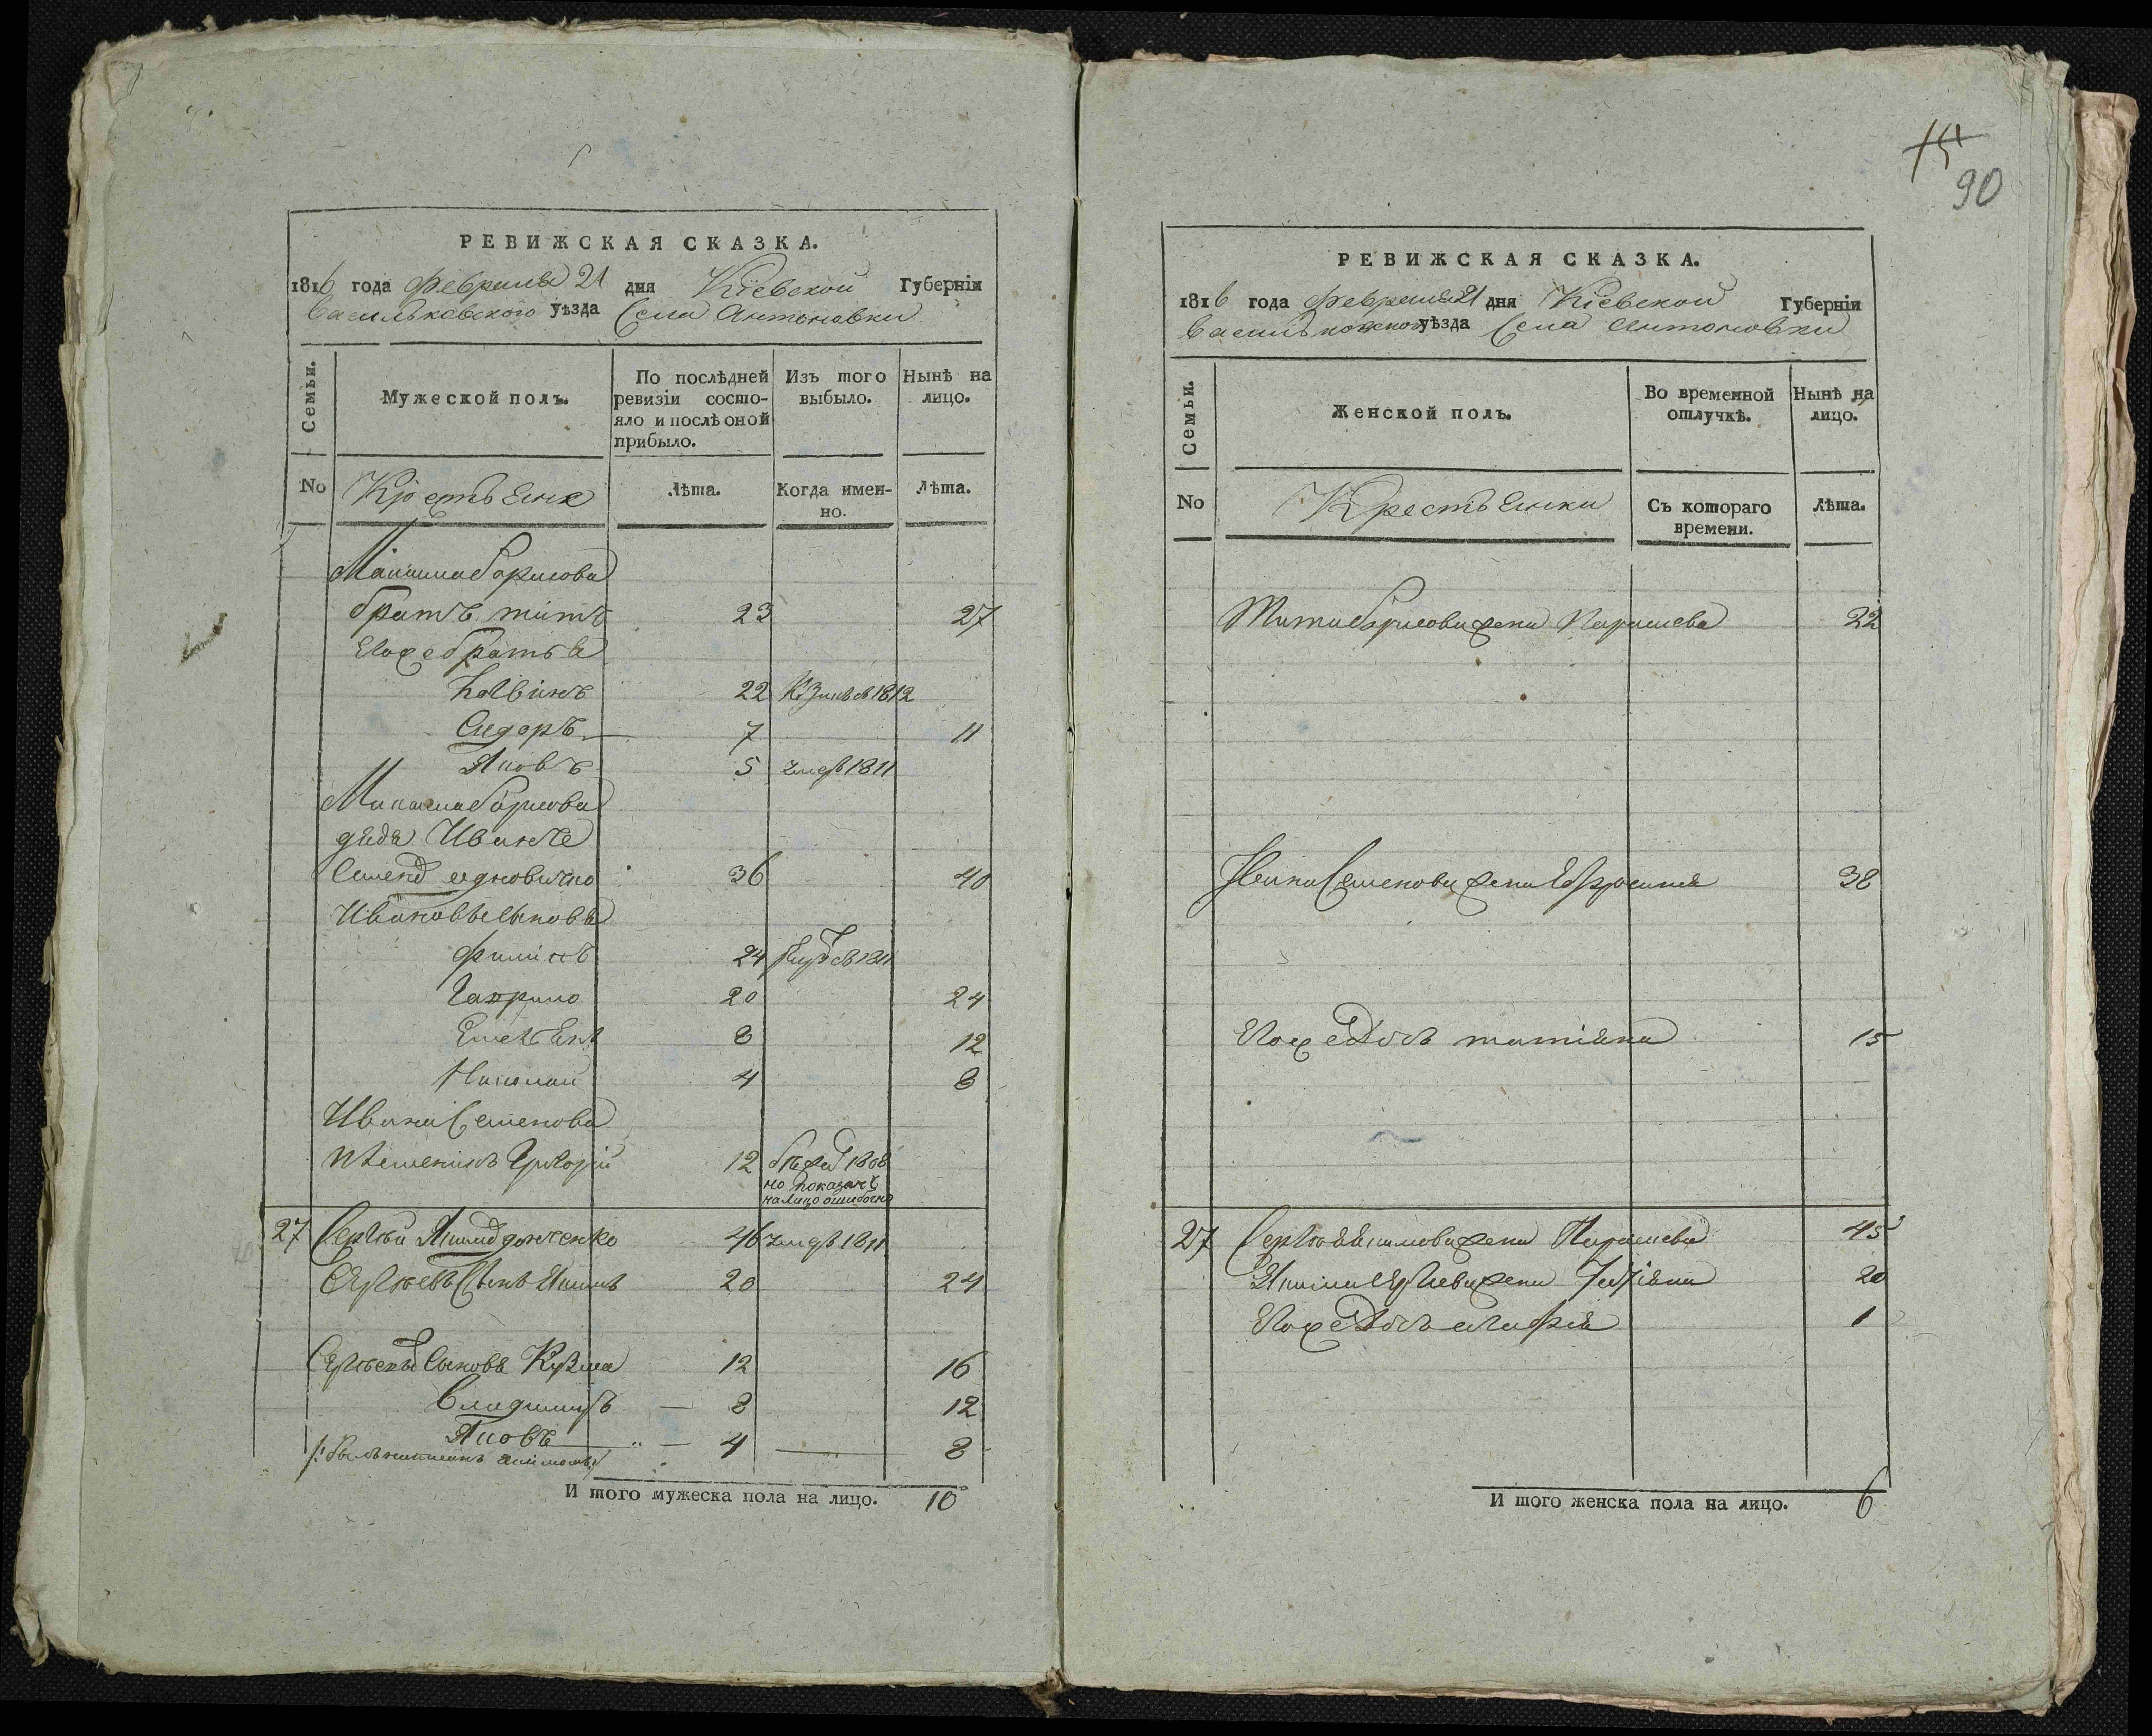 РЕВИЖСКАЯ СКАЗКА.
1816 года февраля 21 дня Кіевской Губерніи
Васильковского уѣзда Села Антоновки
Семьи.
Мужеской полъ.
По послѣдней ревизіи состо-
яло и послѣ оной прибыло.
Изъ того выбыло.
Нынѣ на лицо.
No
Крестьяне
Лѣта.
Когда имен-
но.
Лѣта.
Максима Борисова
братъ титъ 23 27
Его же братья
22 1812
Сидоръ 7 11
Яковъ 5 умер 1811
Максима Борисова
дядя Иванъ
36 40
Ивановы сыновья
филипъ 24 1811
Гаврило 20 24
Емельянъ 8 12
Николай 4 8
Ивана Семенова
племеникъ Григорий 12 бежал 1808
но показанъ
на лицо ошибочно
27 Сергѣй Якимов 46 умер 1811
Сергѣевъ сынъ Якимъ 20 24
Сергѣевы сыновья Кузма 12 16
Владимиръ 8 12
Яковъ 4 8
И того мужеска пола на лицо. 10
15
90
РЕВИЖСКАЯ СКАЗКА.
1816 года февраля 21 дня Кіевской Губерніи
Васильковского уѣзда Села Антоновки
Семьи.
Женской полъ.
Во временной отлучкѣ.
Нынѣ на лицо.
No
Крестьянки
Съ котораго времени.
Лѣта.
Тита Борисова жена Параскева 22
Ивана Семенова жена Ефросиния 38
Его же дочь татияна 15
27 Сергѣя Якимова жена Параскева 45
Якима Сергѣева жена 20
Его же дочь 1
И того женска пола на лицо. 6